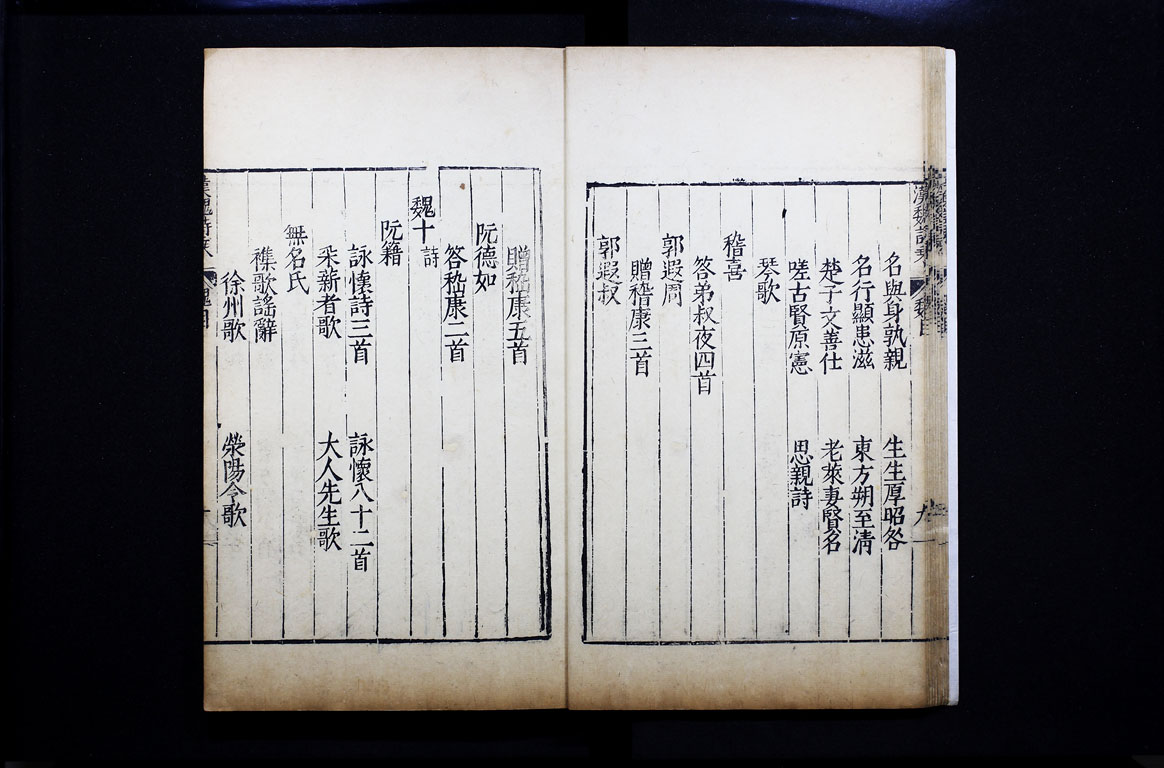 名與身孰親　生生厚昭咎
名行顯患滋　東方朔至清
楚子文善仕　老萊妻賢名
嗟古賢原憲　思親詩
琴歌
嵇喜
答弟叔夜四首
郭遐周
贈嵇康三首
郭遐叔
贈嵇康五首
阮德如
答嵇康二首
魏十　詩
阮籍
詠懷詩三首　詠懷八十二首
采薪者歌　大人先生歌
無名氏
襍歌謠辭
徐州歌　滎陽令歌